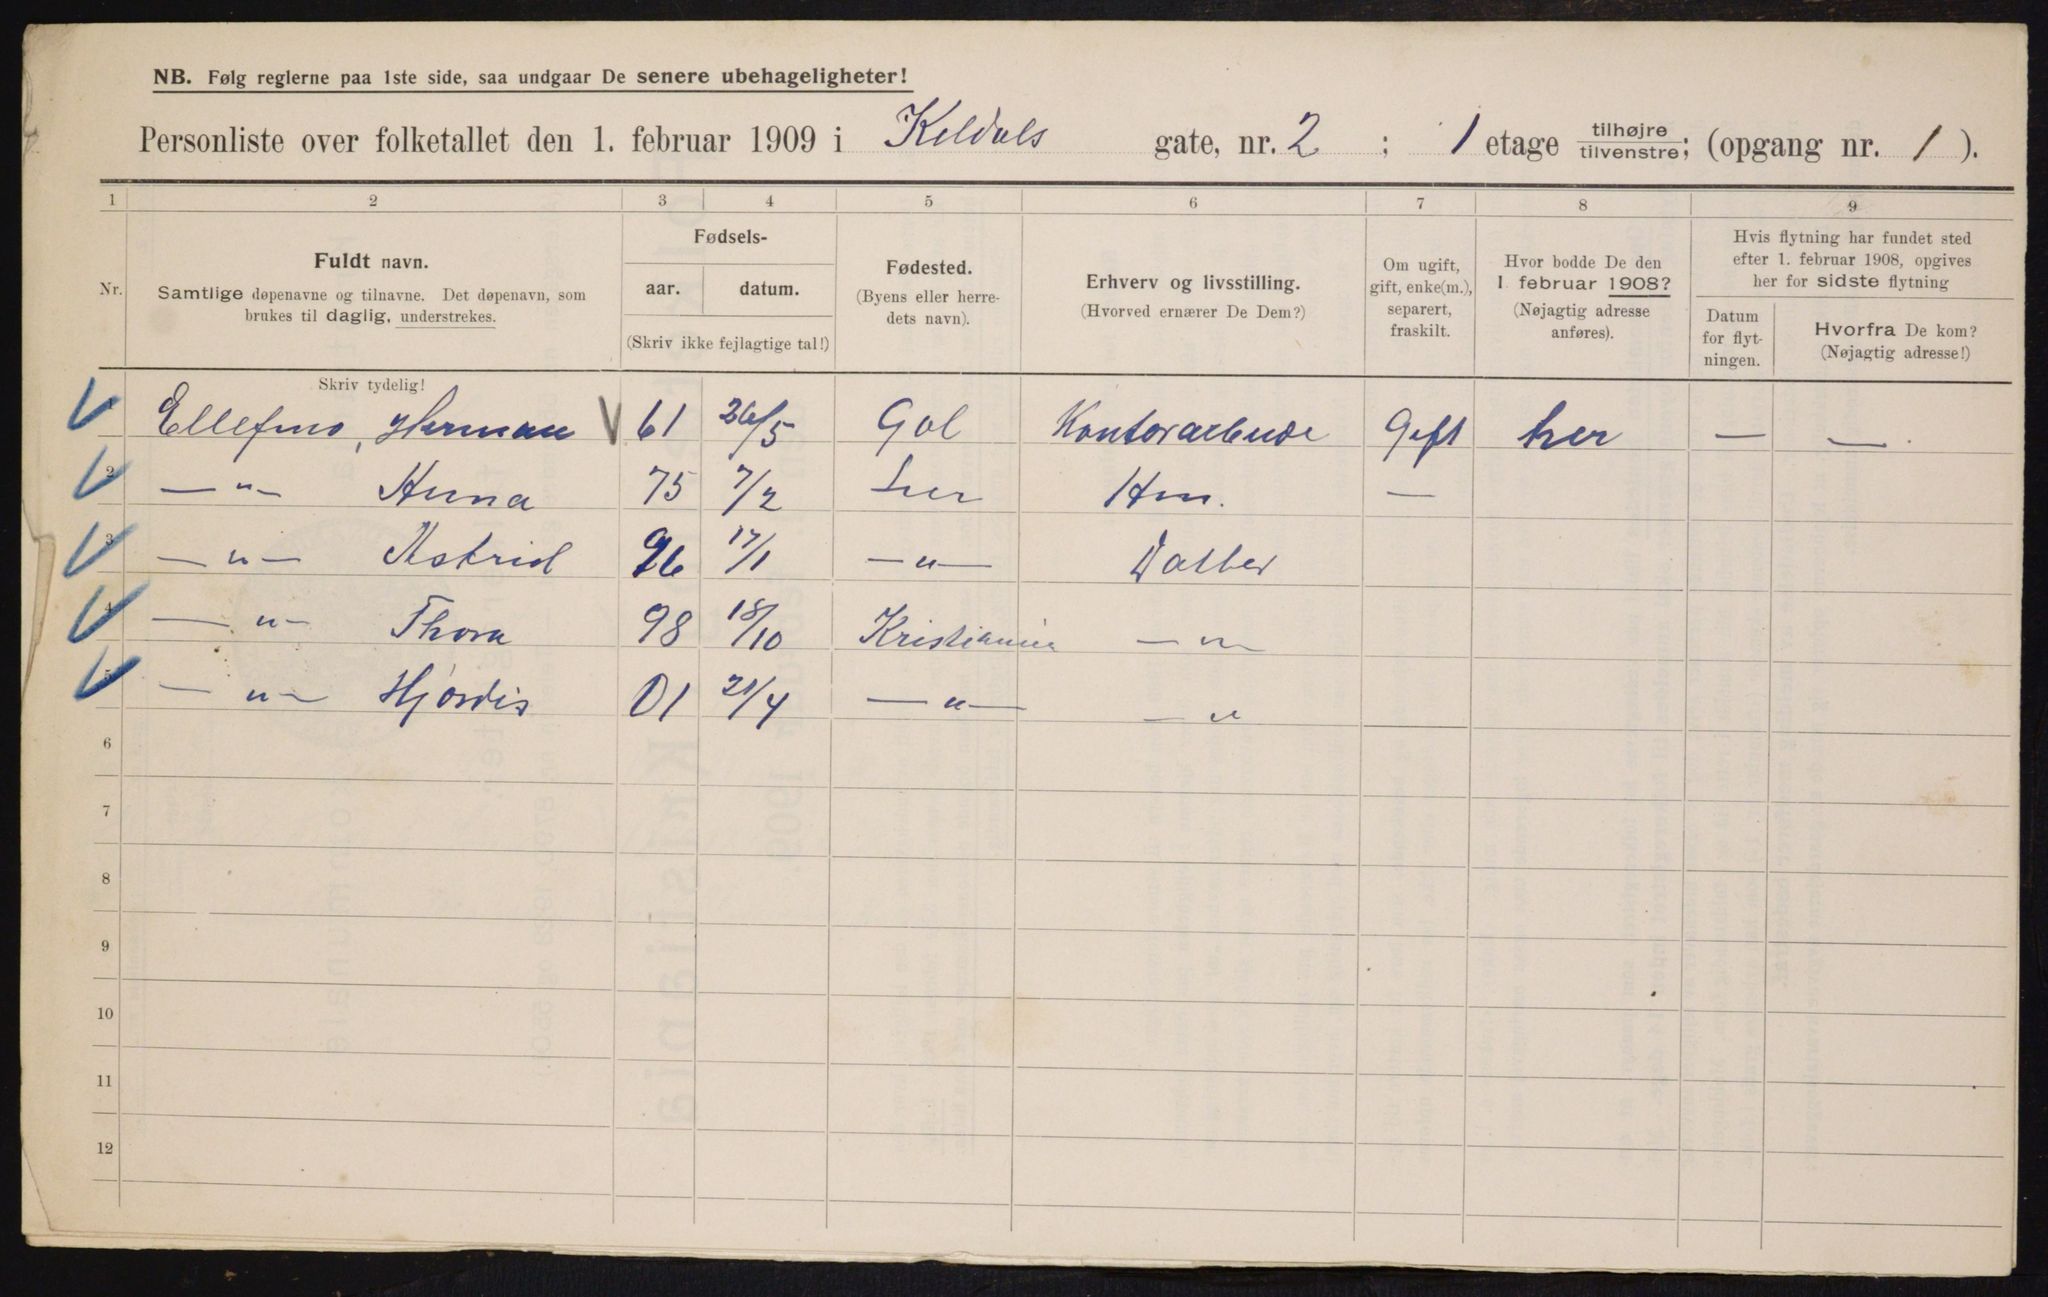 NB. Følg reglerne paa 1ste side, saa undgaar De senere ubehageligheter!
Personliste over folketallet den 1. februar 1909 i Keldals gate, nr. 2 ; 1 etage tilhøjre/tilvenstre; (opgang nr. 1 ).
1 2 3 4 5 6 7 8 9
Nr.
Fuldt navn.
Samtlige døpenavne og tilnavne. Det døpenavn, som
brukes til daglig, understrekes.
Skriv tydelig!
Fødsels-
aar. datum.
(Skriv ikke fejlagtige tal!)
Fødested.
(Byens eller herre-
dets navn).
Erhverv og livsstilling.
(Hvorved ernærer De Dem?)
Om ugift,
gift, enke(m.),
separert,
fraskilt.
Hvor bodde De den
1. februar 1908?
(Nøjagtig adresse
anføres).
Hvis flytning har fundet sted
efter 1. februar 1908, opgives
her for sidste flytning
Datum
for flyt-
ningen.
Hvorfra De kom?
(Nøjagtig adresse!)
Herman 61 26/5 Gol Gift her — —
2 — " — Anna 75 7/2 —
3 — " — Astrid 96 17/1 — " — Datter
4 — " — Thora 98 18/10 Kristiania — " —
5 — " — Hjørdis 01 21/4 — " — — "
6
7
8
9
10
11
12